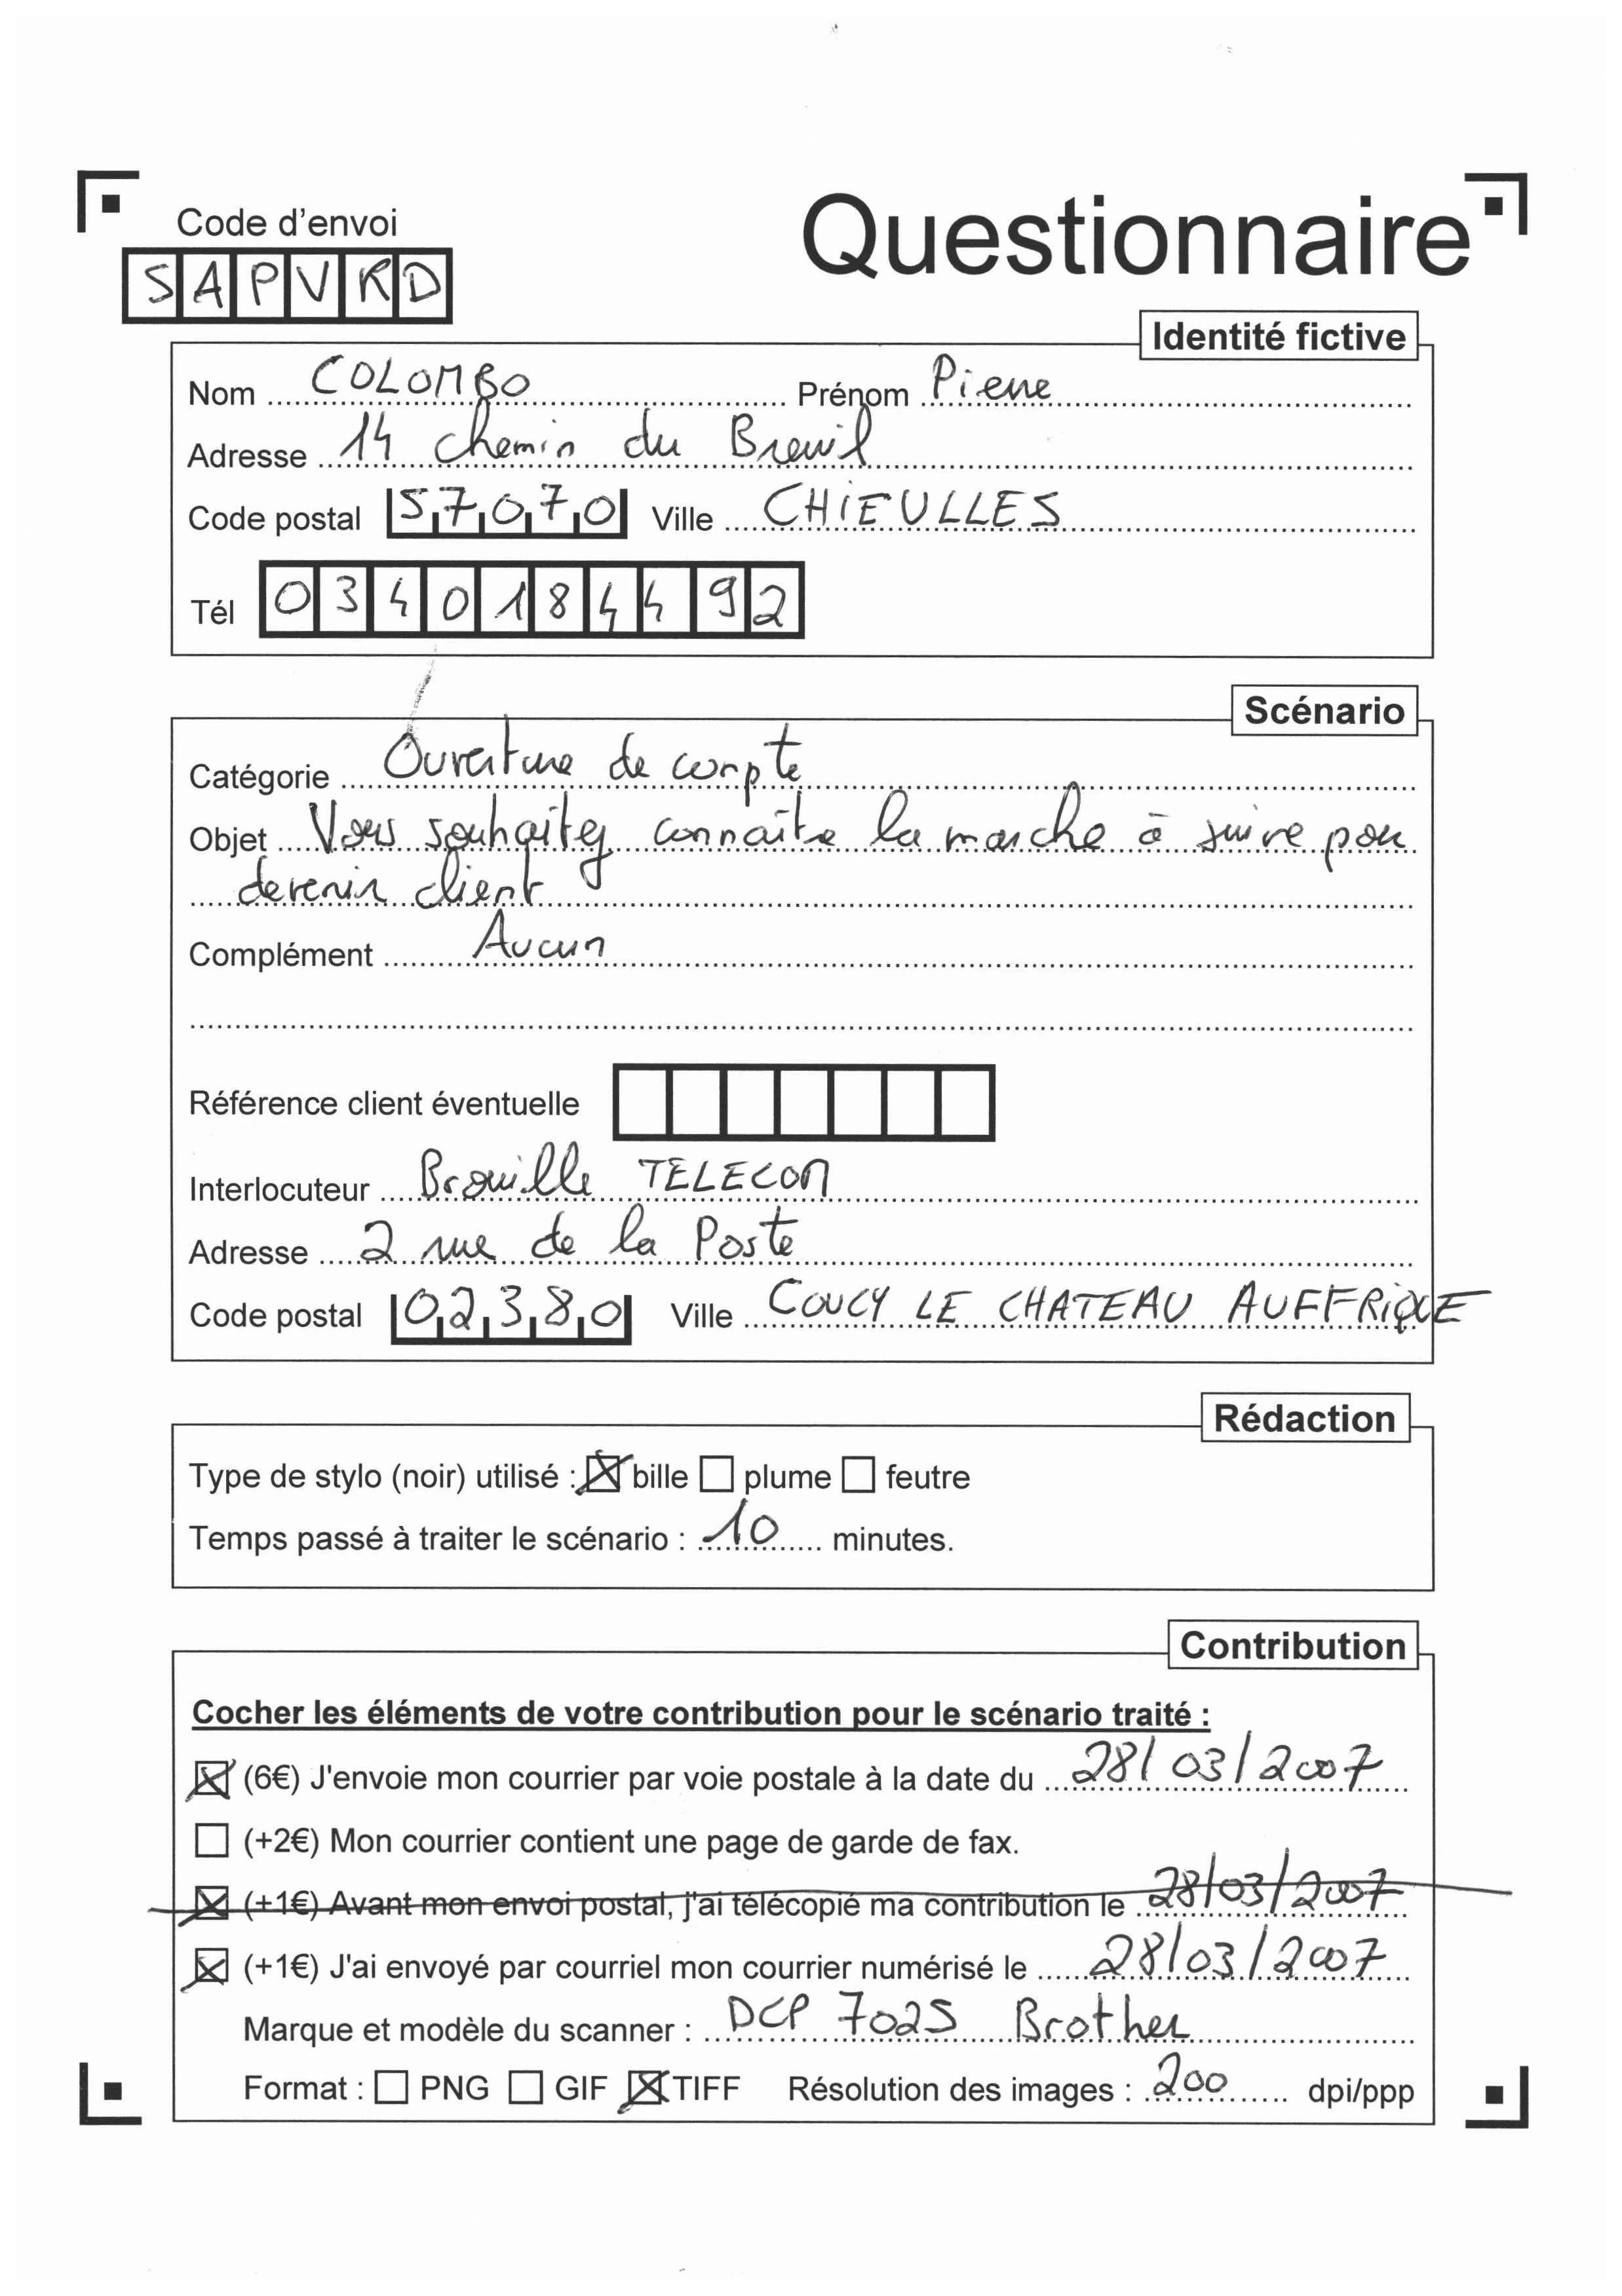 Code d'envoi
SAPVRD
Questionnaire
Identité fictive
Nom COLOMBO Prénom Pierre
Adresse 14 chemin du Breuil
Code postal 57070 Ville CHIEULLES
Tél 0340184492
Scénario
Catégorie Ouverture de compte
Objet Vous souhaitez connaître la marche à suivre pour
devenir client
Complément Aucun
Référence client éventuelle
Interlocuteur Brouille TELECOM
Adresse 2 rue de la Poste
Code postal 02380 Ville COUCY LE CHATEAU AUFFRiQUE
Rédaction
Type de stylo (noir) utilisé : bille plume feutre
Temps passé à traiter le scénario : 10 minutes.
Contribution
Cocher les éléments de votre contribution pour le scénario traité :
(6€) J'envoie mon courrier par voie postale à la date du 28/03/2007
(+2€) Mon courrier contient une page de garde de fax.
(+1€) Avant mon envoi postal, j'ai télécopié ma contribution le 28/03/2007
(+1€) J'ai envoyé par courriel mon courrier numérisé le 28/03/2007
Marque et modèle du scanner : DCP 7025 Brother
Format : PNG GIF TIFF Résolution des images : 200 dpi/ppp